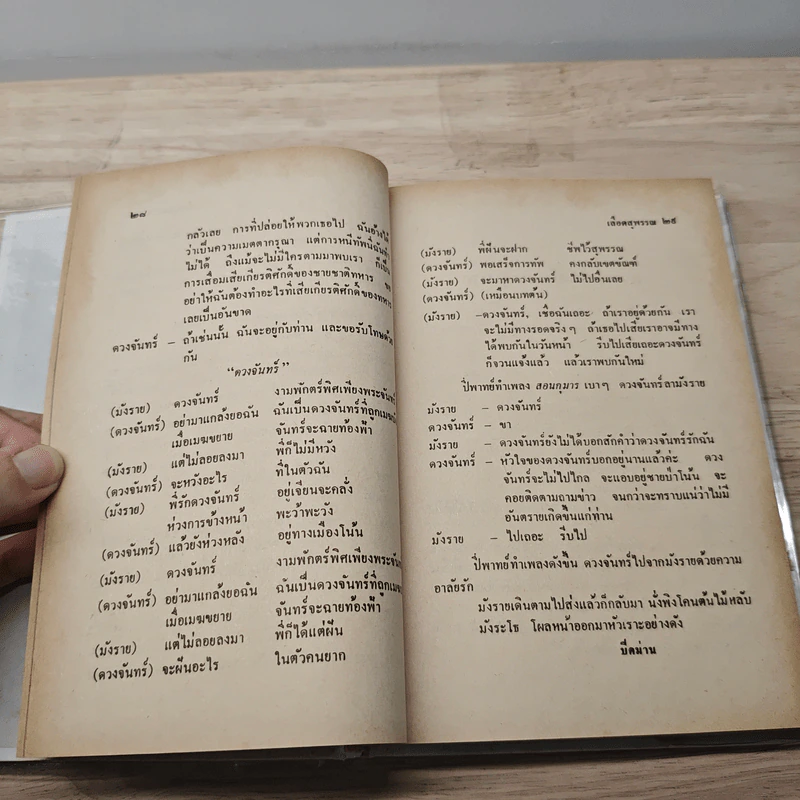 ๒๘
กลัวเลย การที่ปล่อยให้พวกเธอไป ฉันอ้างได้
ว่าเป็นความเมตตากรุณา แต่การหนีทัพนี่ฉันทำ
ไม่ได้ ถึงแม้จะไม่มีใครตามมาพบเรา ก็เป็น
การเสื่อมเสียเกียรติศักดิ์ของชายชาติทหาร
อย่าให้ฉันต้องทำอะไรที่เสียเกียรติศักดิ์ของทหาร
เลยเป็นอันขาด
ดวงจันทร์ – ถ้าเช่นนั้น ฉันจะอยู่กับท่าน และขอรับโทษด้วย
กัน
“ดวงจันทร์”
(มังราย) ดวงจันทร์ งามพักตร์พิศเพียงพระจันทร์
(ดวงจันทร์) อย่ามาแกล้งยอฉัน ฉันเป็นดวงจันทร์ที่ถูกเมฆบัง
เมื่อเมฆขยาย จันทร์จะฉายท้องฟ้า
(มังราย) แต่ไม่ลอยลงมา พี่ก็ไม่มีหวัง
(ดวงจันทร์) จะหวังอะไร ที่ในตัวฉัน
(มังราย) พี่รักดวงจันทร์ อยู่เจียนจะคลั่ง
ห่วงการข้างหน้า พะว้าพะวัง
(ดวงจันทร์) แล้วยังห่วงหลัง อยู่ทางเมืองโน้น
(มังราย) ดวงจันทร์ งามพักตร์พิศเพียงพระจันทร์
(ดวงจันทร์) อย่ามาแกล้งยอฉัน ฉันเป็นดวงจันทร์ที่ถูกเมฆ
เมื่อเมฆขยาย จันทร์จะฉายท้องฟ้า
(มังราย) แต่ไม่ลอยลงมา พี่ก็ได้แต่ฝืน
(ดวงจันทร์) จะฝืนอะไร ในตัวคนยาก
เลือดสุพรรณ ๒๙
(มังราย) พี่ฝืนจะฝาก ชีพไว้สุพรรณ
(ดวงจันทร์) พอเสร็จการทัพ คงกลับเขตขัณฑ์
(มังราย) จะมาหาดวงจันทร์ ไม่ไปอื่นเลย
(ดวงจันทร์) (เหมือนบทต้น)
(มังราย) –ดวงจันทร์, เชื่อฉันเถอะ ถ้าเราอยู่ด้วยกัน เรา
จะไม่มีทางรอดจริงๆ ถ้าเธอไปเสียเราอาจมีทาง
ได้พบกันในวันหน้า รีบไปเสียเถอะดวงจันทร์
ก็จวนแจ้งแล้ว แล้วเราพบกันใหม่
ปี่พาทย์ทำเพลง สอนกุมาร เบาๆ ดวงจันทร์ลามังราย
มังราย – ดวงจันทร์
ดวงจันทร์ – ขา
มังราย – ดวงจันทร์ยังไม่ได้บอกสักคำว่าดวงจันทร์รักฉัน
ดวงจันทร์ – หัวใจของดวงจันทร์บอกอยู่นานแล้วค่ะ ดวง
จันทร์จะไม่ไปไกล จะแอบอยู่ชายป่าโน้น จะ
คอยติดตามถามข่าว จนกว่าจะทราบแน่ว่าไม่มี
อันตรายเกิดขึ้นแก่ท่าน
มังราย – ไปเถอะ รีบไป
ปี่พาทย์ทำเพลงดังขึ้น ดวงจันทร์ไปจากมังรายด้วยความ
อาลัยรัก
มังรายเดินตามไปส่งแล้วก็กลับมา นั่งพิงโคนต้นไม้หลับ
มังระโธ โผลหน้าออกมาหัวเราะอย่างดัง
ปิดม่าน